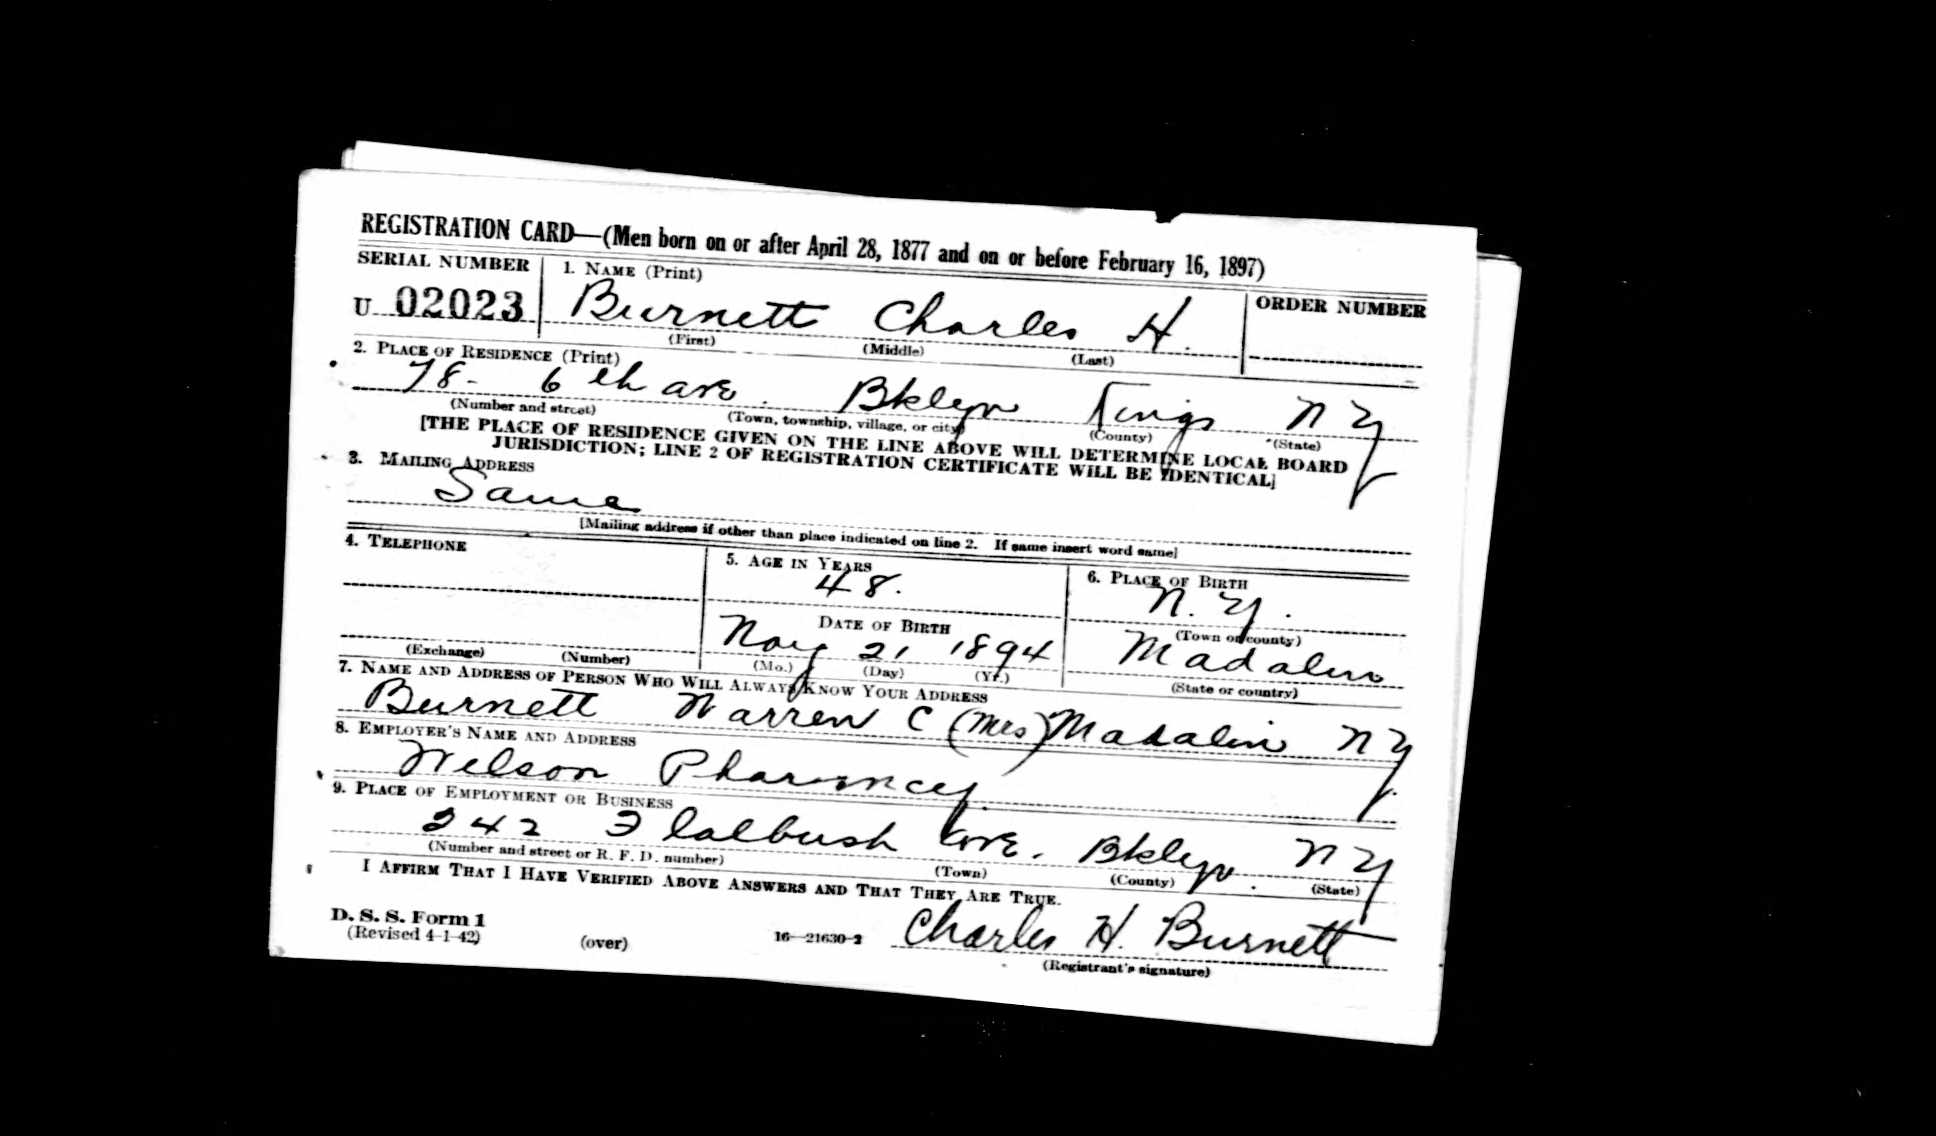 REGISTRATION CARD—(Men born on or after April 28, 1877 and on or before February 16, 1897)
SERIAL NUMBER
1. NAME (Print)
ORDER NUMBER
U 02023
Burnett Charles H.
(First) (Middle) (Last)
2. PLACE OF RESIDENCE (Print)
78- 6th ave. Bklyn Kings N Y
(Number and street) (Town, township, village, or city) (County) (State)
[THE PLACE OF RESIDENCE GIVEN ON THE LINE ABOVE WILL DETERMINE LOCAL BOARD
JURISDICTION; LINE 2 OF REGISTRATION CERTIFICATE WILL BE IDENTICAL]
3. MAILING ADDRESS
Same
[Mailing address if other than place indicated on line 2. If same insert word same]
4. TELEPHONE
(Exchange) (Number)
5. AGE IN YEARS
48.
DATE OF BIRTH
21 1894
(Mo.) (Day) (Yr.)
6. PLACE OF BIRTH
N. Y.
(Town or county)
Madalin
(State or country)
7. NAME AND ADDRESS OF PERSON WHO WILL ALWAYS KNOW YOUR ADDRESS
Burnett Warren C (Mrs) Madalin N Y
8. EMPLOYER'S NAME AND ADDRESS
Pharmacy.
9. PLACE OF EMPLOYMENT OR BUSINESS
242 Flatbush Ave. Bklyn. N Y
(Number and street or R. F. D. number) (Town) (County) (State)
I AFFIRM THAT I HAVE VERIFIED ABOVE ANSWERS AND THAT THEY ARE TRUE.
D. S. S. Form 1
(Revised 4-1-42)
(over)
16—21630-2
Charles H. Burnett
(Registrant's signature)